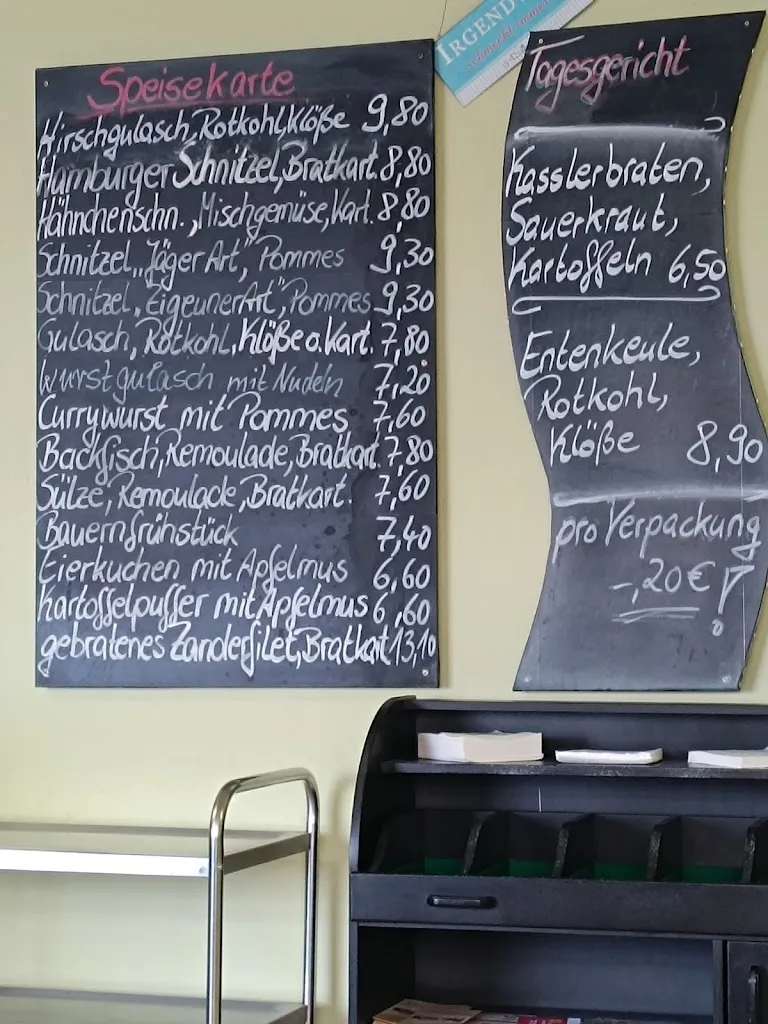 Speisekarte
Hirschgulasch, Rotkohl, Klöße 9,80
Hamburger Schnitzel, Bratkart. 8,80
Hähnchenschn., Mischgemüse, Kart. 8,80
Schnitzel „Jäger Art", Pommes 9,30
Schnitzel „Zigeuner Art" Pommes 9,30
Gulasch, Rotkohl, Klöße o. Kart. 7,80
Wurstgulasch mit Nudeln 7,20
Currywurst mit Pommes 7,60
Backfisch, Remoulade, Bratkart. 7,80
Sülze, Remoulade, Bratkart. 7,60
Bauernfrühstück 7,40
Eierkuchen mit Apfelmus 6,60
Kartoffelpuffer mit Apfelmus 6,60
gebratenes Zanderfilet, Bratkart 13,10
IRGEND
schmeckt immer
Tagesgericht
Kasslerbraten,
Sauerkraut,
Kartoffeln 6,50
Entenkeule,
Rotkohl,
Klöße 8,90
pro Verpackung
-,20 € !